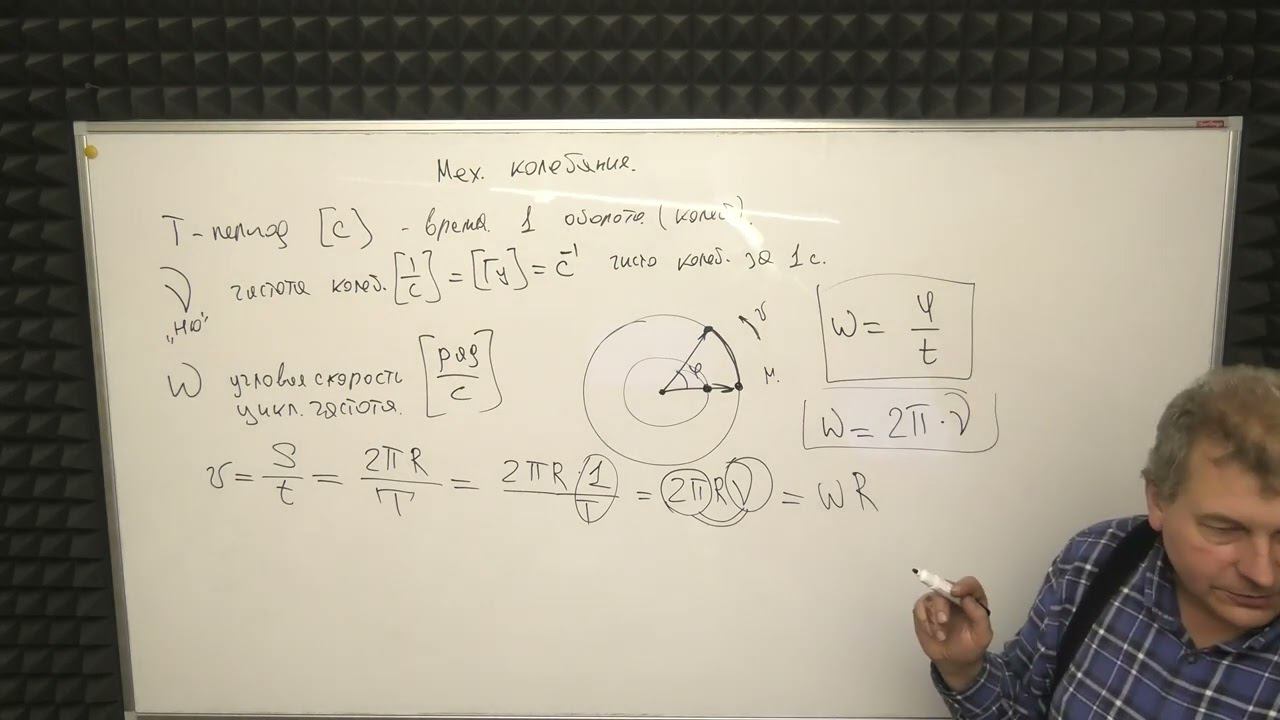 Мех. колебания.
T - период [с] - время 1 оборота (колеб).
ν частота колеб. [1/с] = [Гц] = с⁻¹ число колеб. за 1 с.
„Ню"
ω угловая скорость [рад/с]
цикл. частота.
φ
υ
М.
ω = φ/t
ω = 2π·ν
υ = S/t = 2πR/T = 2πR·1/T = 2πRν = ωR